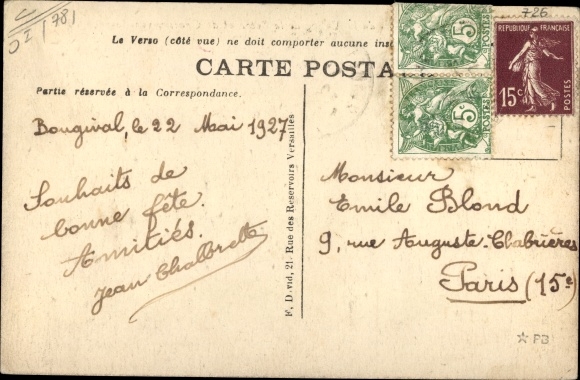 OI 1781
726
Le Verso (côté vue) ne doit comporter aucune
CARTE POSTA
Partie réservée à la Correspondance.
5c
5c
REPUBLIQUE FRANÇAISE
POSTES
15c
Bougival, le 22 Mai 1927
Souhaits de
bonne fête.
Amitiés.
Jean
F. David, 21, Rue des Reservoirs Versailles
Monsieur
Emile Blond
9, rue Auguste-Chabrières
Paris (15e)
☆ PB